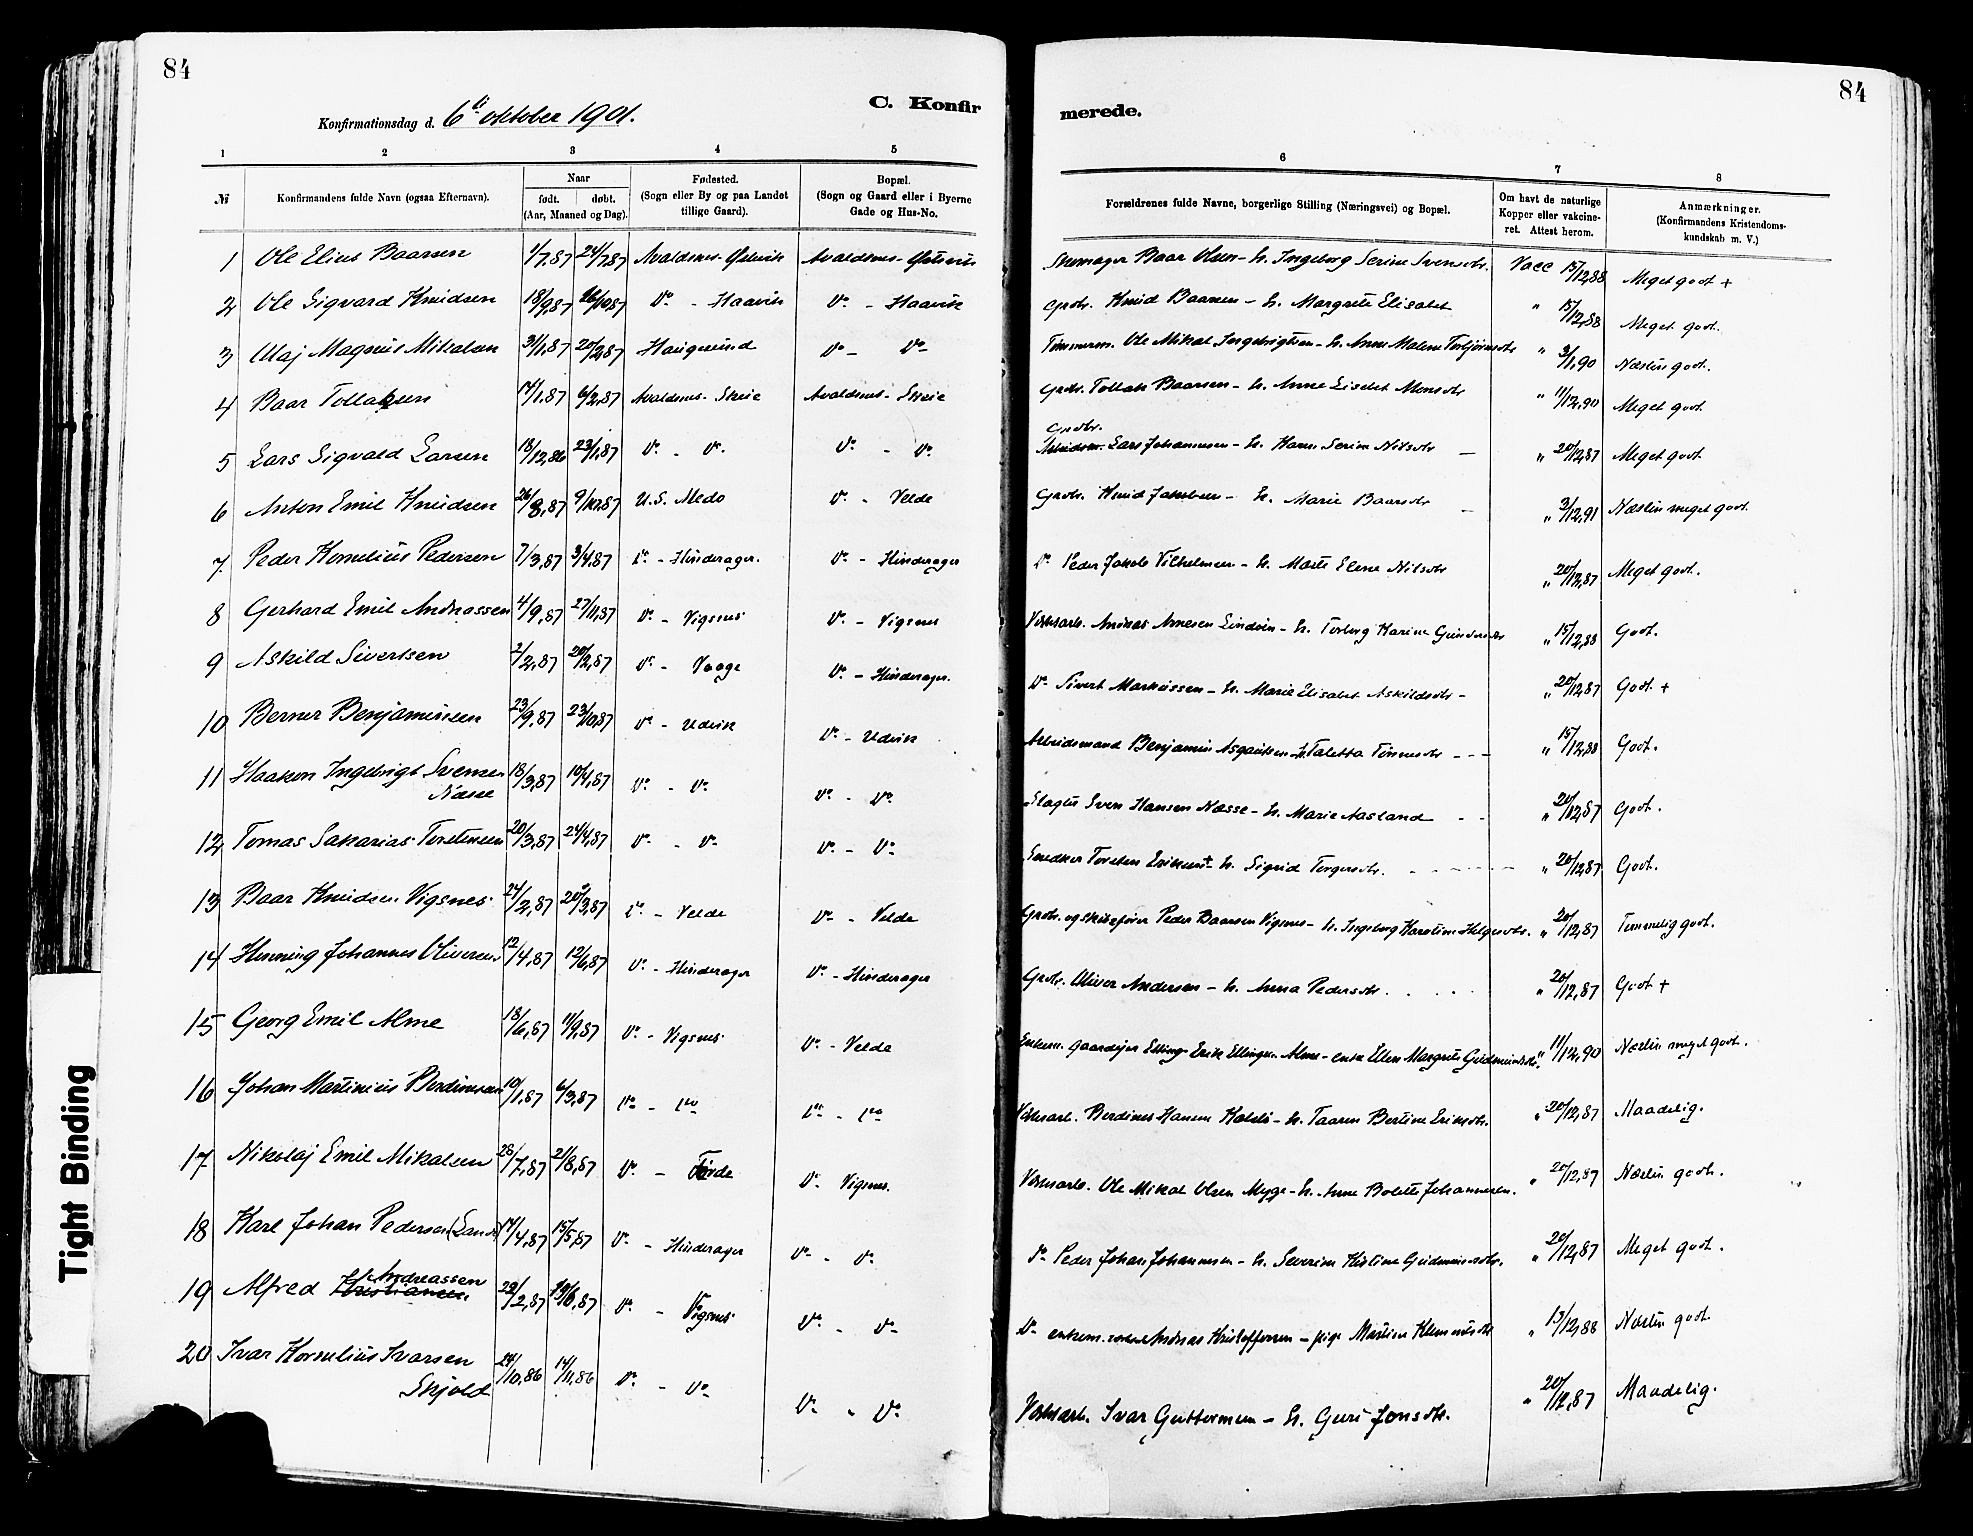 84
84
Konfirmationsdag d. 6te oktober 1901.
C. Konfir
merede.
1 2 3 4 5 6 7 8
№ Konfirmandens fulde Navn (ogsaa Efternavn). Naar født. døbt. (Aar, Maaned og Dag). Fødested. (Sogn eller By og paa Landet tillige Gaard). Bopæl. (Sogn og Gaard eller i Byerne Gade og Hus-No. Forældrenes fulde Navne, borgerlige Stilling (Næringsvei) og Bopæl. Om havt de naturlige Kopper eller vakcineret. Attest herom. Anmærkninger. (Konfirmandens Kristendomskundskab m. V.)
1 Ole Elius Baarsen 1/7.87 24/7.87 Avaldsnes - Avaldsnes - Skomager Baar Olsen - h. Ingeborg Serine Svensdtr. Vacc 15/12,88 Meget godt +
2 Ole Sigvard Knudsen 18/9,87 Do - Haavik Do - Haavik Grdbr. Knud Baarsen - h. Margrete Elisabet " 15/12,88 Meget godt.
3 Olaj Magnus Mikalsen 31/1,87 20/2,87 Haugesund Do - Do Tømmerm. Ole Mikal Ingebrigtsen - h. Anne Malene Torbjørnsdtr " 3/1,90 Næsten godt.
4 Baar Tollaksen 14/1,87 6/2,87 Avaldsnes - Skeie Avaldsnes - Skeie Grdbr. Tollak Baarsen - h. Anne Lisabet Monsdtr " 11/12,90 Meget godt
5 Lars Sigvald Larsen 18/12,86 23/1,87 Do - Do. Do - Do. Grdbr. Lars Johannessen - h. Karen Serine Nilsdtr " 20/12,87 Meget godt
6 Anton Emil Knudsen 26/8,87 9/10,87 U.S. Medo Do - Velde Grdbr. Knud Jakobsen - h. Marie Baarsdtr " 3/12,91 Næsten meget godt.
7 Peder Kornelius Pedersen 7/3,87 3/4,87 Do - Hinderager. Do - Hinderager Do Peder Jakob Vilhelmsen - h. Marte Elene Nilsdtr " 20/12,87 Meget godt.
8 Gerhard Emil Andreassen 4/9,87 27/11,87 Do - Vigsnes Do - Vigsnes Verksarb. Andreas Arnesen Lindøen - h. Torborg Karine Gundersdtr " 15/12,88 Godt.
9 Askild Sivertsen 2/2,87 20/2,87 Do - Vaage Do - Hinderager. Do Sivert Markussen - h. Marie Elisabet Askildsdtr - " 20/12,87 Godt +
10 Berner Benjaminsen 23/9,87 23/10,87 Do - Udvik Do - Udvik Arbeidsmand Benjamin Asgautsen - h. Taletta Tønnesdtr " 15/12,88 Godt.
11 Haakon Ingebrigt Svensen Næsse 18/3,87 10/4,87 Do - Do. Do - Do. Slagter Sven Hansen Næsse - h. Marie Aasland " 20/12,87 Godt.
12 Tomas Sakarias Torstensen 20/3,87 24/4,87 Do - Do Do - Do Snedker Torsten Eriksen + h. Sigrid Torgersdtr. " 20/12,87 Godt.
13 Baar Knudsen Vigsnes 24/2,87 20/3,87 Do - Velde Do - Velde Grdbr. og skibsfører Peder Baarsen Vigsnes - h. Ingeborg Karoline Helgesdtr. " 20/12,87 Temmelig godt.
14 Henning Johannes Oliversen 12/4,87 12/6,87 Do - Hinderager Do - Hinderager Grdbr. Oliver Andersen - h. Anna Pedersdtr. " 20/12,87 Godt +
15 Georg Emil Alme 18/6,87 11/9,87 Do - Vigsnes Do - Velde Enkem. gaardejer Erik Ellingsen Alme - enke Ellen Margrete Gudmundsdtr. " 11/12,90 Næsten meget godt.
16 Johan Martinius Berdinesen 10/1,87 6/3,87 Do - Do Do - Do Verksarb. Berdines Hansen - h. Taaren Bertine Eriksdtr. " 20/12,87 Maadelig.
17 Nikolaj Emil Mikalsen 26/7,87 21/8,87 Do - Førde Do. Vigsnes. Verksarb. Ole Mikal Olsen Myge - h. Anne Bolette Johannesen. " 20/12,87 Næsten godt.
18 Karl Johan Pedersen (Sand) 17/4,87 15/5,87 Do - Hinderager Do - Do. Do Peder Johan Johannessen - h. Severine Kristine Gudmundsdtr. " 20/12,87 Meget godt.
19 Alfred Kristiansen Andreassen 22/2,87 19/6,87 Do - Vigsnes Do - Do Do enkem. Andreas Kristoffersen - pige Martine Klemensdtr " 13/12,88 Næsten godt.
20 Ivar Kornelius Ivarsen Skjold 24/10,86 14/11,86 Do - Do Do - Do Verksarb. Ivar Guttormsen - h. Guri Jonsdtr. " 20/12,87 Maadelig.
Tight Binding